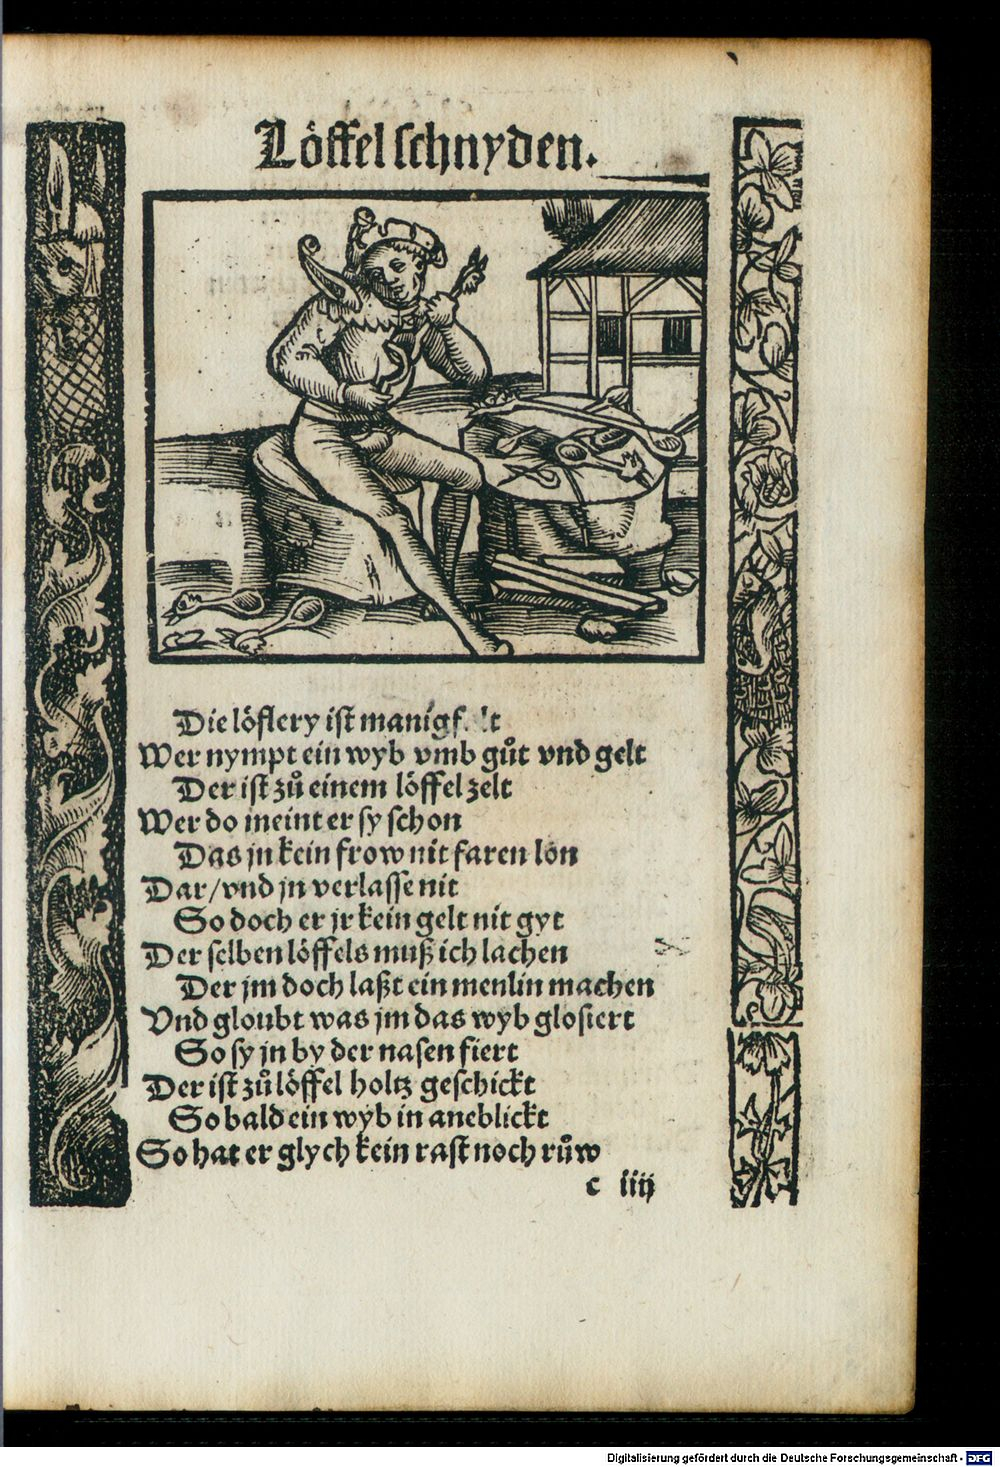 Löffel schnyden.
Die löflery ist manigfalt
Wer nympt ein wyb vmb gůt vnd gelt
Der ist zů einem löffel zelt
Wer do meint er sy schon
Das jn kein frow nit faren lon
Dar/vnd jn verlasse nit
So doch er jr kein gelt nit gyt
Der selben löffels muß ich lachen
Der jm doch laßt ein menlin machen
Vnd gloubt was jm das wyb glosiert
So sy jn by der nasen fiert
Der ist zů löffel holtz geschickt
So bald ein wyb in aneblickt
So hat er glych kein rast noch růw
c iiij
Digitalisierung gefördert durch die Deutsche Forschungsgemeinschaft - DFG